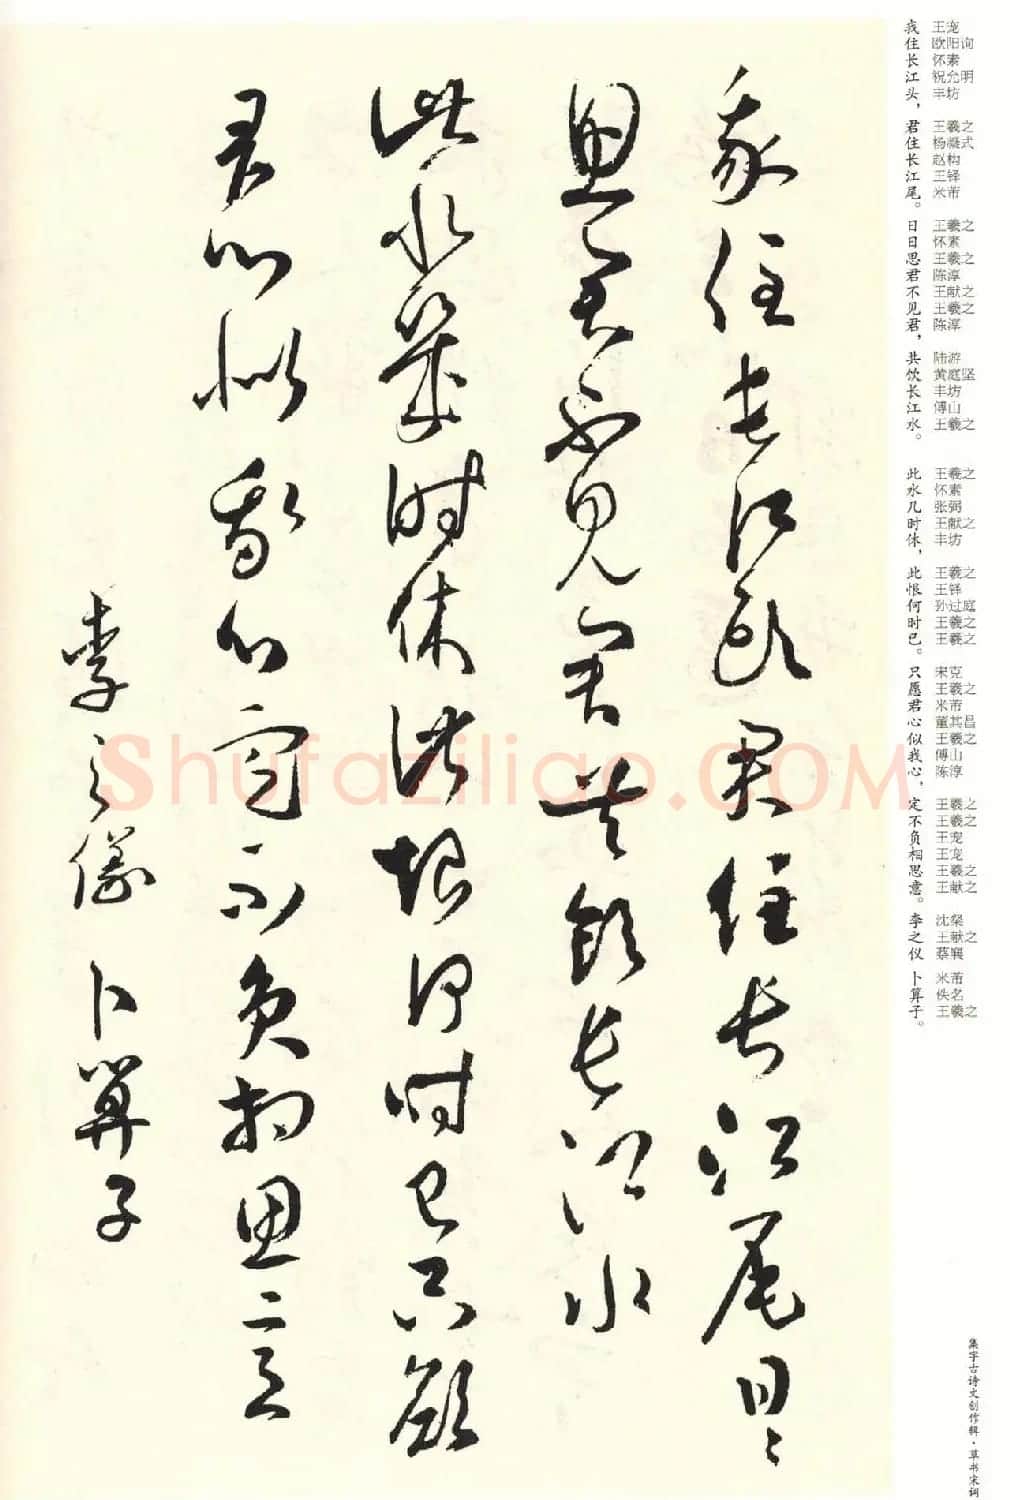 我住長江頭君住長江尾日日
思君不見君共飲長江水
此水幾時休此恨何時已只願
君心似我心定不負相思意
李之儀 卜算子
我 王宠
住 欧阳询
长 怀素
江 祝允明
头， 丰坊
君 王羲之
住 杨凝式
长 赵构
江 王铎
尾。 米芾
日 王羲之
日 怀素
思 王羲之
君 陈淳
不 王献之
见 王羲之
君， 陈淳
共 陆游
饮 黄庭坚
长 丰坊
江 傅山
水。 王羲之
此 王羲之
水 怀素
几 张弼
时 王献之
休， 丰坊
此 王羲之
恨 王铎
何 孙过庭
时 王羲之
已。 王羲之
只 宋克
愿 王羲之
君 米芾
心 董其昌
似 王羲之
我 傅山
心， 陈淳
定 王羲之
不 王羲之
负 王宠
相 王宠
思 王羲之
意。 王献之
李 沈粲
之 王献之
仪 蔡襄
卜 米芾
算 佚名
子。 王羲之
集字古诗文创作辑·草书宋词
Shufaziliao.COM